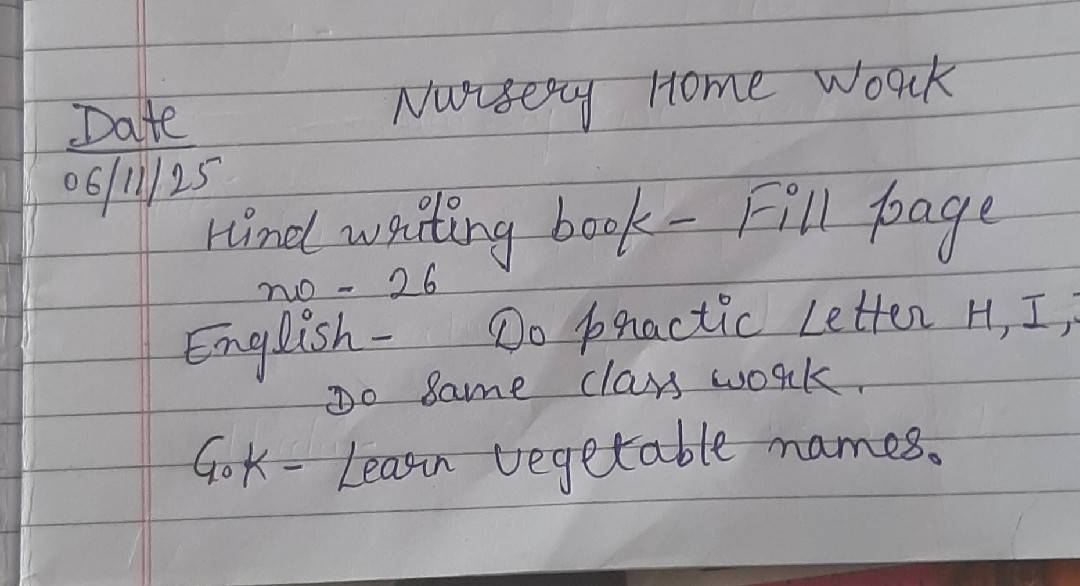 Nursery Home Work
Date
06/11/25
Hind writing book - Fill page
no - 26
English - Do practic Letter H, I,
Do same class work.
G.K - Learn vegetable names.